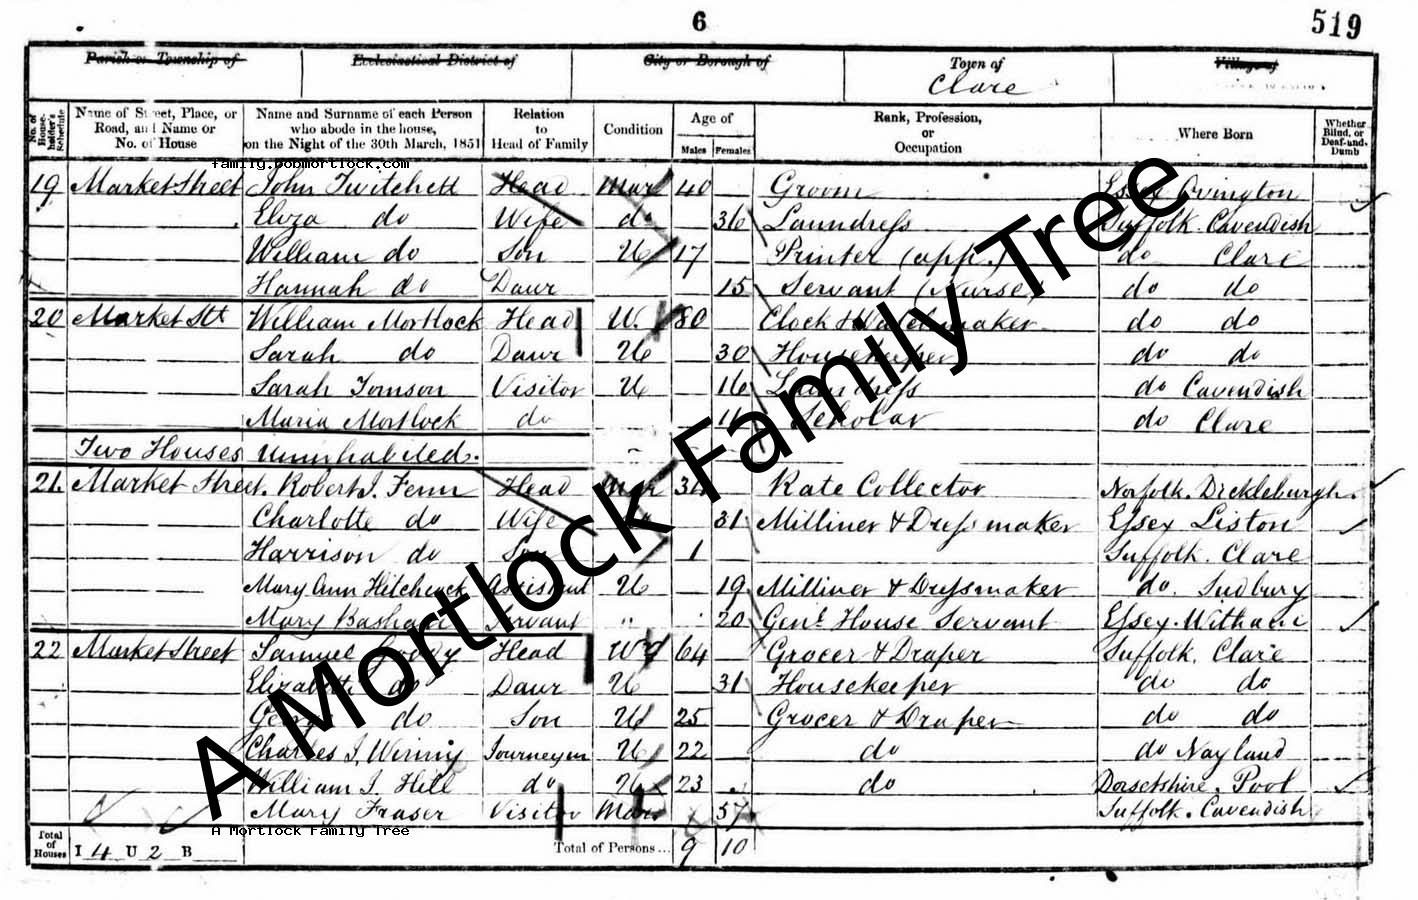 6
519
Parish or Township of
Ecclesiastical District of
City or Borough of
Town of
Clare
Village of
No. of House-holder's Schedule
Name of Street, Place, or Road, and Name or No. of House
Name and Surname of each Person who abode in the house, on the Night of the 30th March, 1851
Relation to Head of Family
Condition
Age of
Males Females
Rank, Profession, or Occupation
Where Born
Whether Blind, or Deaf-and-Dumb
family.bobmortlock.com
19 Market Street John Twitchett Head Mar 40 Groom Essex Ovington
Eliza do Wife do 36 Laundress Suffolk Cavendish
William do Son U 17 Printer (app.) do Clare
Hannah do Daur 15 Servant (Nurse) do do
20 Market Stt William Mortlock Head W. 80 Clock & Watchmaker do do
Sarah do Daur U 30 Housekeeper do do
Sarah Tomson Visitor U 16 Laundress do Cavendish
Maria Mortlock do Scholar do Clare
Two Houses Uninhabited.
21. Market Street. Robert J. Fenn Head Mar Rate Collector Norfolk. Dickleburgh.
Charlotte do Wife 31 Milliner & Dressmaker Essex Liston
Harrison do Son 1 Suffolk. Clare
Mary Ann Hitchcock Assistant U 19 Milliner & Dressmaker do. Sudbury
Mary Servant " 20 Genl. House Servant Essex. Witham
22 Market Street Samuel Goody Head Wd 64 Grocer & Draper Suffolk. Clare
Elizabeth do Daur U 31 Housekeeper do do
do Son U 25 Grocer & Draper do do
Charles J. Winny Journeyman U 22 do do Nayland
William J. Hill do U 23 do Dorsetshire. Pool
Mary Fraser Visitor Mar 57 Suffolk. Cavendish
A Mortlock Family Tree
A Mortlock Family Tree
Total of Houses I 4 U 2 B Total of Persons... 9 10